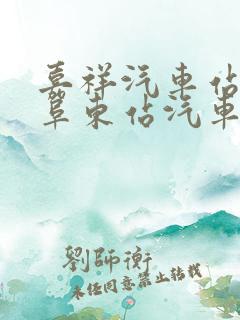 嘉祥汽車佔
阜東佔汽車
劉師衡
未经同意禁止转载